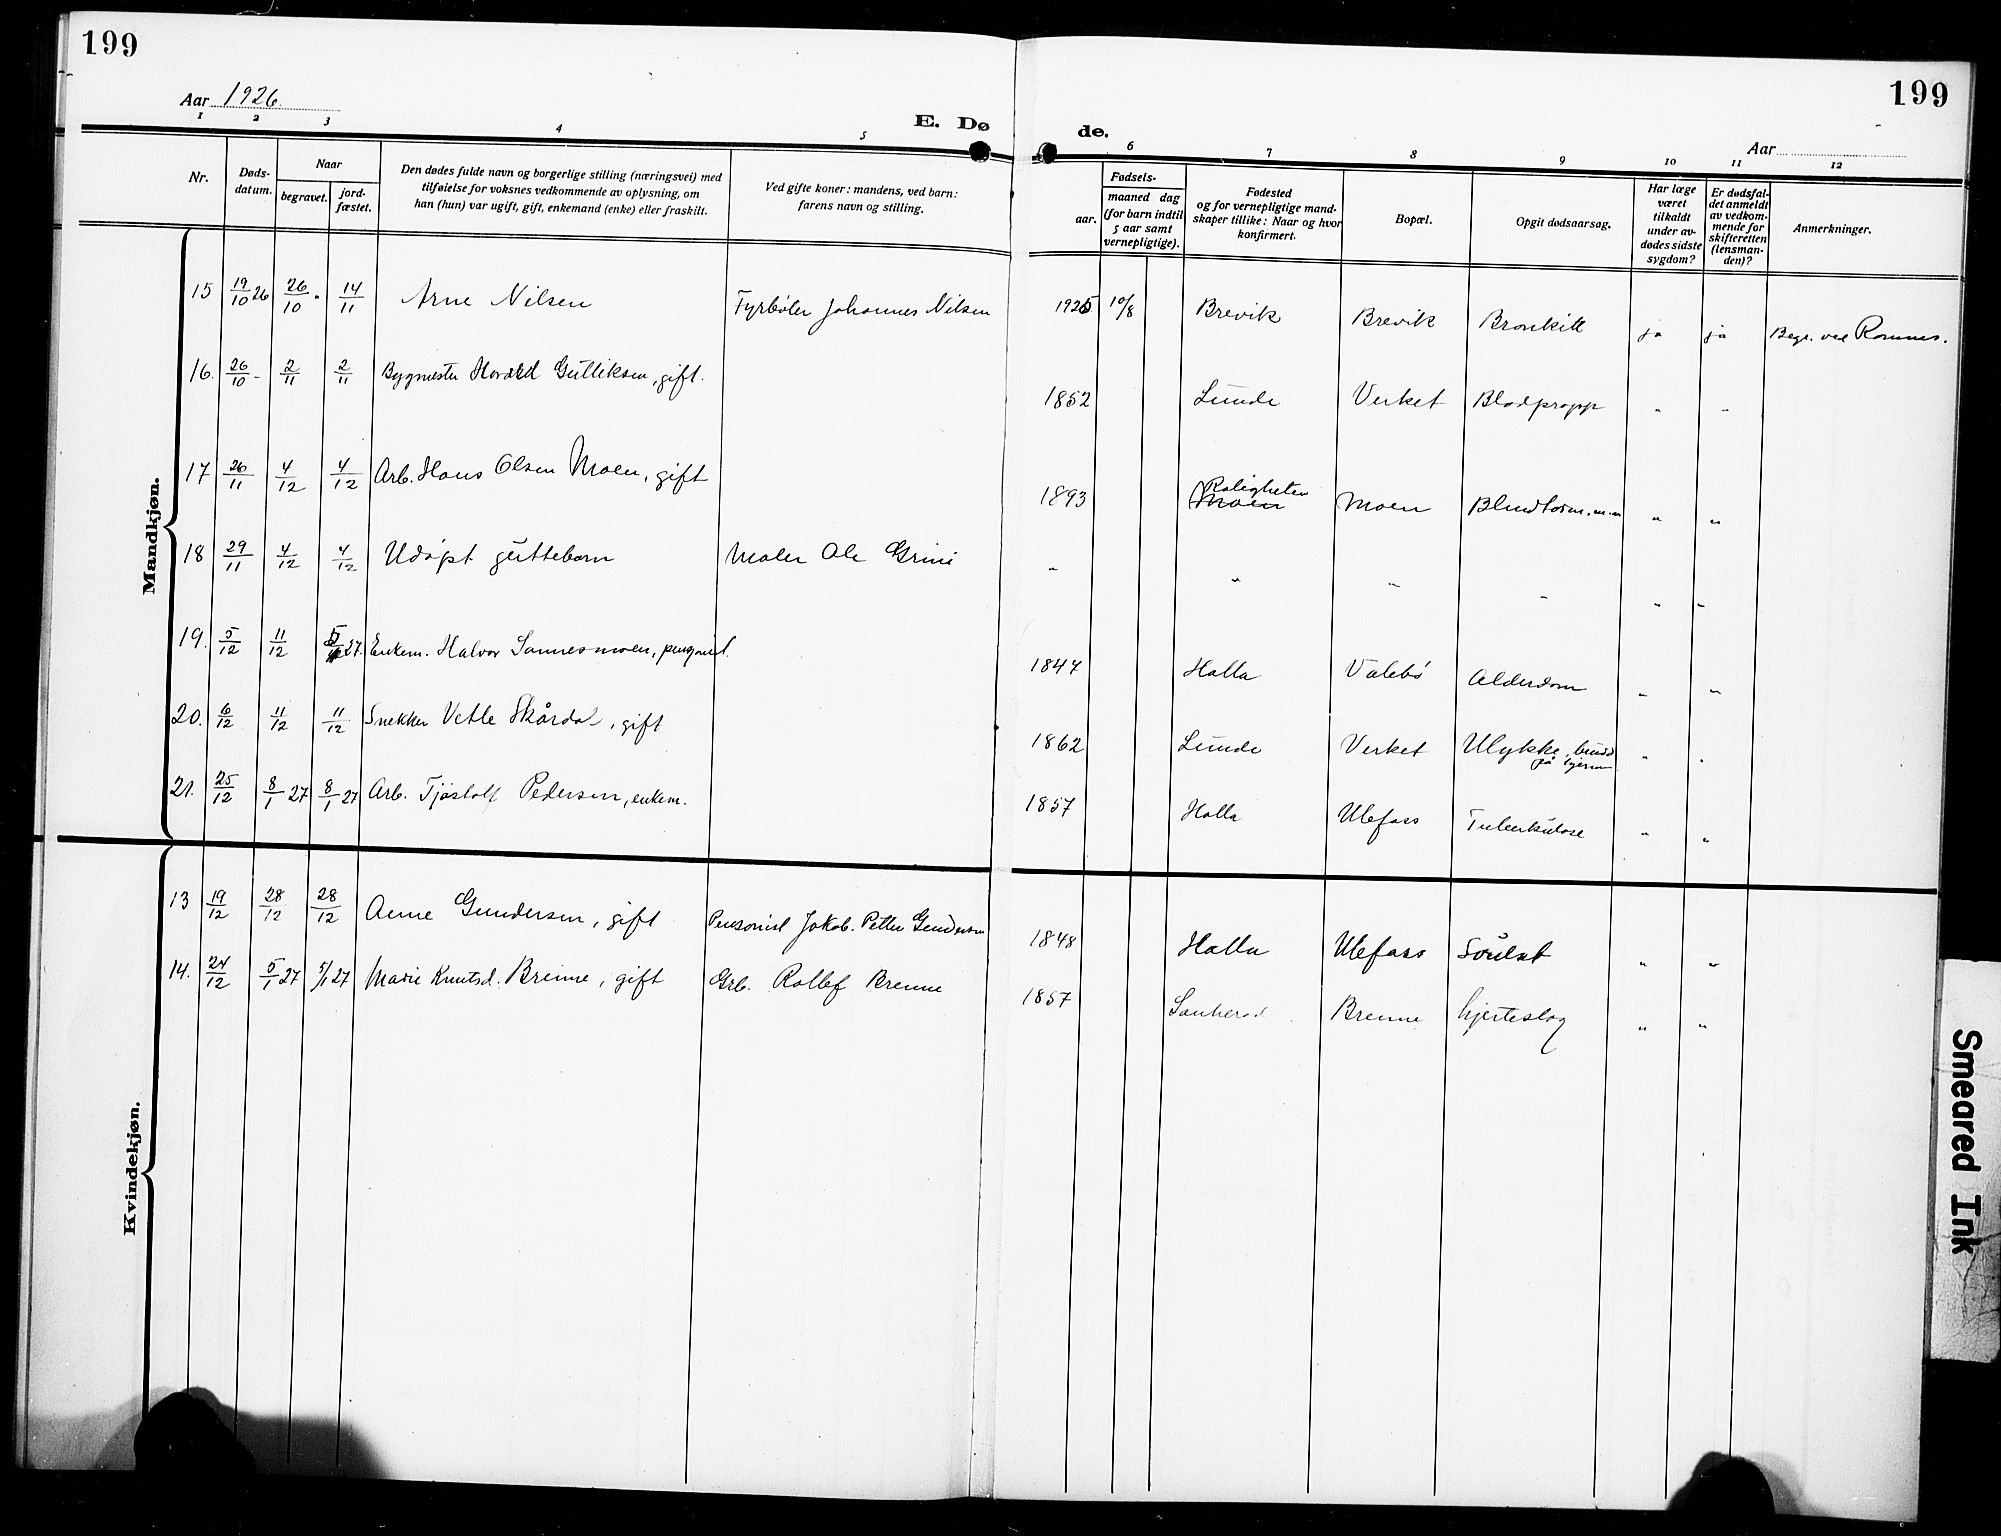 199
199
Aar 1926.
E. Dø
de.
Aar
1 2 3 4 5 6 7 8 9 10 11 12
Nr.
Døds-
datum.
Naar
begravet.
jord-
fæstet.
Den dødes fulde navn og borgerlige stilling (næringsvei) med
tilføielse for voksnes vedkommende av oplysning, om
han (hun) var ugift, gift, enkemand (enke) eller fraskilt.
Ved gifte koner: mandens, ved barn:
farens navn og stilling.
Fødsels-
aar.
maaned dag
(for barn indtil
5 aar samt
vernepligtige).
Fødested
og for vernepligtige mand-
skaper tillike: Naar og hvor
konfirmert.
Bopæl.
Opgit dødsaarsag.
Har læge
været
tilkaldt
under av-
dødes sidste
sygdom?
Er dødsfal-
det anmeldt
av vedkom-
mende for
skifteretten
(lensman-
den)?
Anmerkninger.
Mandkjøn.
15 19/10 26 26/10 " 14/11 Arne Nilsen Fyrbøter Johannes Nilsen 1925 10/8 Brevik Brevik Bronkitt ja ja Begr. ved Romnes.
16. 26/10 - 2/11 2/11 Bygmester Gulliksen, gift. 1852 Lunde Verket Blodpropp " "
17 26/11 4/12 4/12 Arb. Hans Olsen Moen, gift 1893 Roligheten Moen Moen " "
18 29/11 4/12 4/12 Udøpt guttebarn Maler Ole Grini " " " " " "
19. 5/12 11/12 27. Enkem. Halvor Sannesmoen, pensjonist. 1847 Holla Valebø Alderdom " "
20. 6/12 11/12 11/12 Snekker Vetle Skårdal, gift 1862 Lunde Verket Ulykke,
på
21. 25/12 8/1 27 8/1 27 Arb. Tjøstolf Pedersen, enkem. 1857 Holla Ulefoss Tuberkulose " "
Kvindekjøn.
13 19/12 28/12 28/12 Anne Gundersen, gift Pensonist Jakob. Petter Gundersen 1848 Holla Ulefoss " "
14. 24/12 5/1 27 5/1 27 Marie Knutsd. Brenne, gift Grb. Rollef Brenne 1857 Sauherad Brenne hjerteslag " "
Smeared Ink